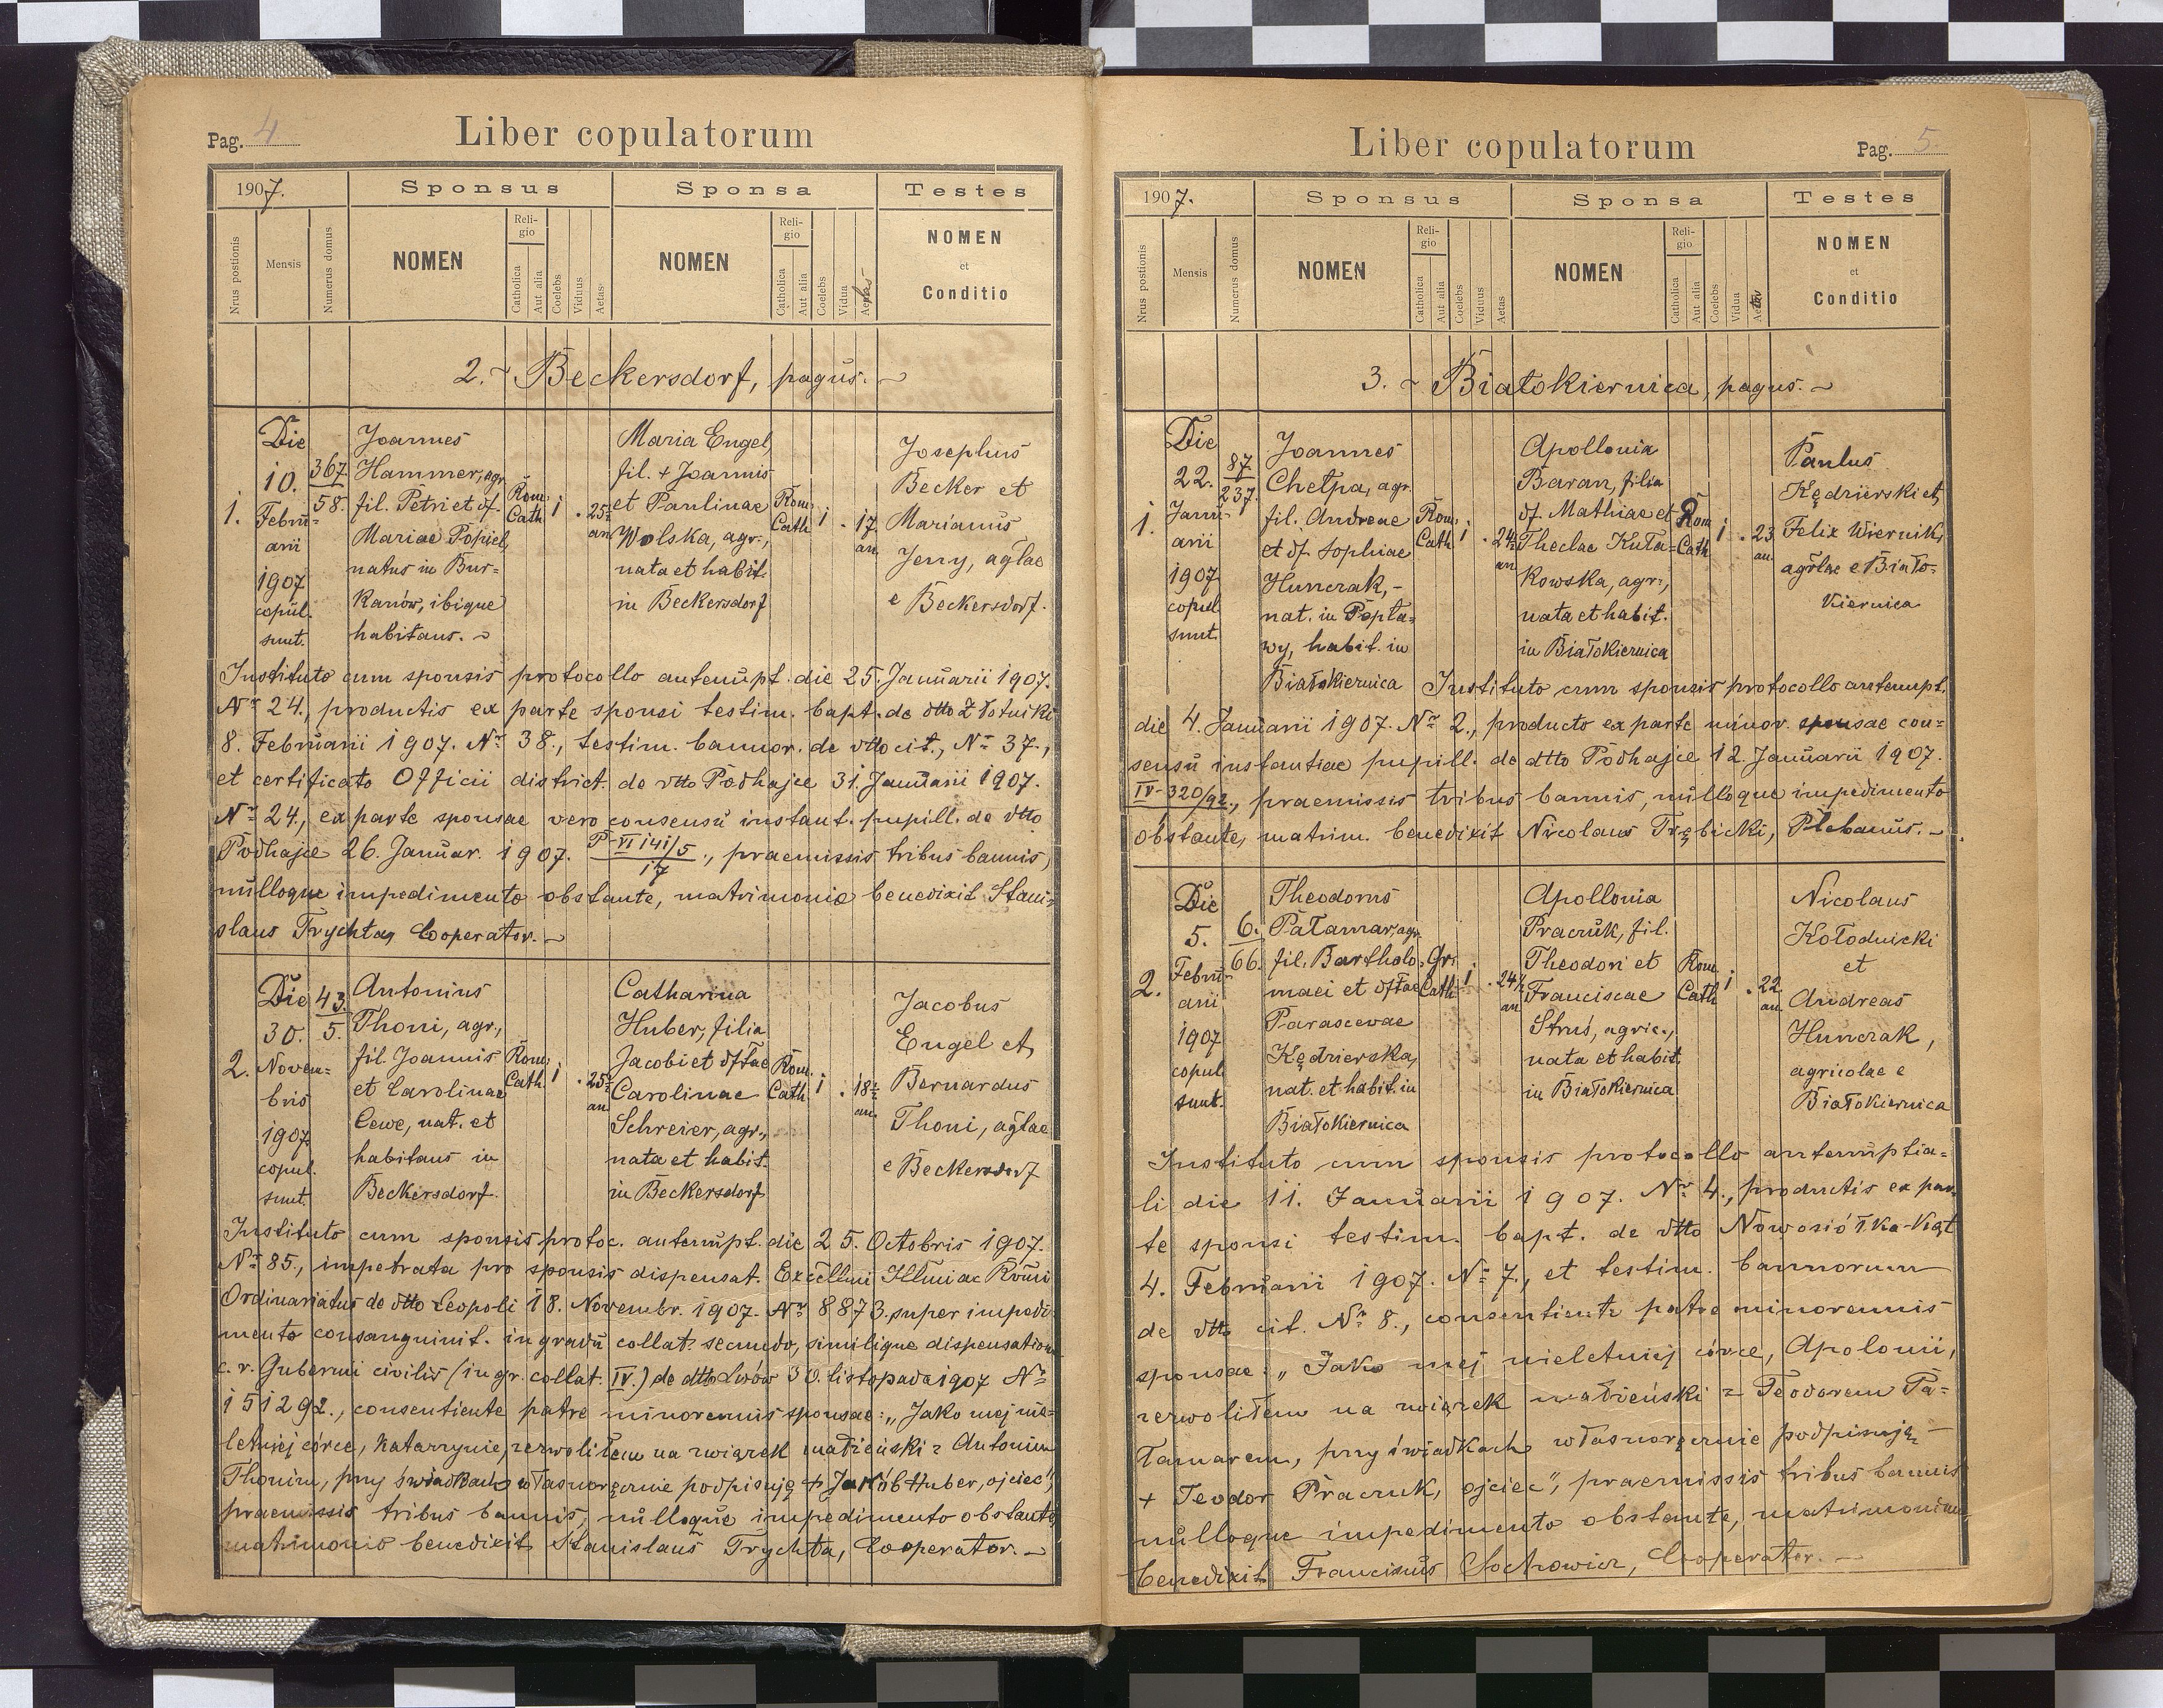 Pag. 4
Liber copulatorum
1907.
Sponsus
Sponsa
Testes
Nrus postionis
Mensis
Numerus domus
NOMEN
Religio
Catholica
Aut alia
Coelebs
Viduus
Aetas
NOMEN
Religio
Catholica
Aut alia
Coelebs
Vidua
Aetas
NOMEN
et
Conditio
2. ~ Beckersdorf, pagus. ~
1.
Die
10.
Febru=
arii
1907
copul.
sunt.
367.
58.
Joannes
Hammer, agr.
fil. Petri et df.
Mariae Popiel,
natus in Bur=
kanów, ibique
habitans. ~
Rom.
Cath.
1
25½
an.
Maria Engel,
fil. + Joannis
et Paulinae
Wolska, agr.,
nata et habit.
in Beckersdorf
Rom.
Cath.
1
17
an.
Josephus
Becker et
Marianus
Jerry, aglae
e Beckersdorf.
Instituto cum sponsis protocollo antenupt. die 25. Januarii 1907.
Nr 24., productis ex parte sponsi testim. bapt. de dtto Złotniki
8. Februarii 1907. Nr 38., testim. bannor. de dtto cit., Nr 37.,
et certificato Officii district. de dtto Podhajce 31. Januarii 1907.
Nr 24., ex parte sponsae vero consensu instant. pupill. de dtto
Podhajce 26. Januar. 1907. P VI 141/5 / 17., praemissis tribus bannis,
nulloque impedimento obstante, matrimonio benedixit Stani=
slaus Trychta, Cooperator. ~
2.
Die
30.
Novem=
bris
1907
copul.
sunt.
43.
5.
Antonius
Thoni, agr.,
fil. Joannis
et Carolinae
Cewe, nat. et
habitans in
Beckersdorf.
Rom.
Cath.
1
25½
an.
Catharina
Huber, filia
Jacobi et dftae
Carolinae
Schreier, agr.,
nata et habit.
in Beckersdorf
Rom.
Cath.
1
18½
an.
Jacobus
Engel et
Bernardus
Thoni, aglae
e Beckersdorf
Instituto cum sponsis protoc. antenupt. die 25. Octobris 1907.
Nr 85., impetrata pro sponsis dispensat. Excellmi Illmi ac Rdmi
Ordinariatus de dtto Leopoli 18. Novembr. 1907. Nr 8873. super impedi
mento consanguinit. in gradu collat. secundo, similique dispensatione
c. r. Gubernii civilis (in gr. collat. IV.) de dtto Lwów 30. listopada 1907 Nr
151292., consentiente patre minorennis sponsae: „Jako mej nie=
letniej córce, Katarzynie, zezwoliłem na związek małżeński z Antonim
Thonim, przy świadkach własnoręcznie podpisuję + Jakób Huber, ojciec",
praemissis tribus bannis, nulloque impedimento obstante,
matrimonio benedixit Stanislaus Trychta, Cooperator. ~
Liber copulatorum
Pag. 5.
1907.
Sponsus
Sponsa
Testes
Nrus postionis
Mensis
Numerus domus
NOMEN
Religio
Catholica
Aut alia
Coelebs
Viduus
Aetas
NOMEN
Religio
Catholica
Aut alia
Coelebs
Vidua
Aetas
NOMEN
et
Conditio
3. ~ Białokiernica, pagus. ~
1.
Die
22.
Janu=
arii
1907
copul
sunt.
87
237.
Joannes
Chełpa, agr.
fil. Andreae
et df. Sophiae
Hunczak, -
nat. in Popła=
wy, habit. in
Białokiernica
Rom.
Cath.
1
24½
an.
Apollonia
Baran, filia
df. Mathiae et
Theclae Kuła=
kowska, agr.,
nata et habit.
in Białokiernica
Rom.
Cath.
1
23
an.
Paulus
Kędzierski et
Felix Wiernik,
agrlae e Biało=
kiernica
Instituto cum sponsis protocollo antenupt.
die 4. Januarii 1907. Nr 2., producto ex parte minor. sponsae con=
sensu instantiae pupill. de dtto Podhajce 12. Januarii 1907.
IV-320/92., praemissis tribus bannis, nulloque impedimento
obstante, matrim. benedixit Nicolaus Trębicki, Plebanus. ~
2.
Die
5.
Febru=
arii
1907
copul
sunt.
6.
66.
Theodorus
Pałamar, agr.
fil. Bartholo=
maei et dftae
Parascevae
Kędzierska,
nat. et habit. in
Białokiernica
Gr.
Cath.
1
24½
an.
Apollonia
Praczuk, fil.
Theodori et
Franciscae
Struś, agric.,
nata et habit.
in Białokiernica
Rom.
Cath.
1
22
an.
Nicolaus
Kołodnicki
et
Andreas
Hunczak,
agricolae e
Białokiernica
Instituto cum sponsis protocollo antenuptia=
li die 11. Januarii 1907. Nr 4., productis ex par=
te sponsi testim. bapt. de dtto Nowosiółka-Kąt
4. Februarii 1907. Nr 7., et testim. bannorum
de dtto cit. Nr 8., consentiente patre minorennis
sponsae: „Jako mej nieletniej córce, Apolonii,
zezwoliłem na związek małżeński z Teodorem Pa=
łamarem, przy świadkach własnoręcznie podpisuję -
+ Teodor Praczuk, ojciec", praemissis tribus bannis
nulloque impedimento obstante, matrimonium
benedixit Franciscus Sochowicz, Cooperator. ~